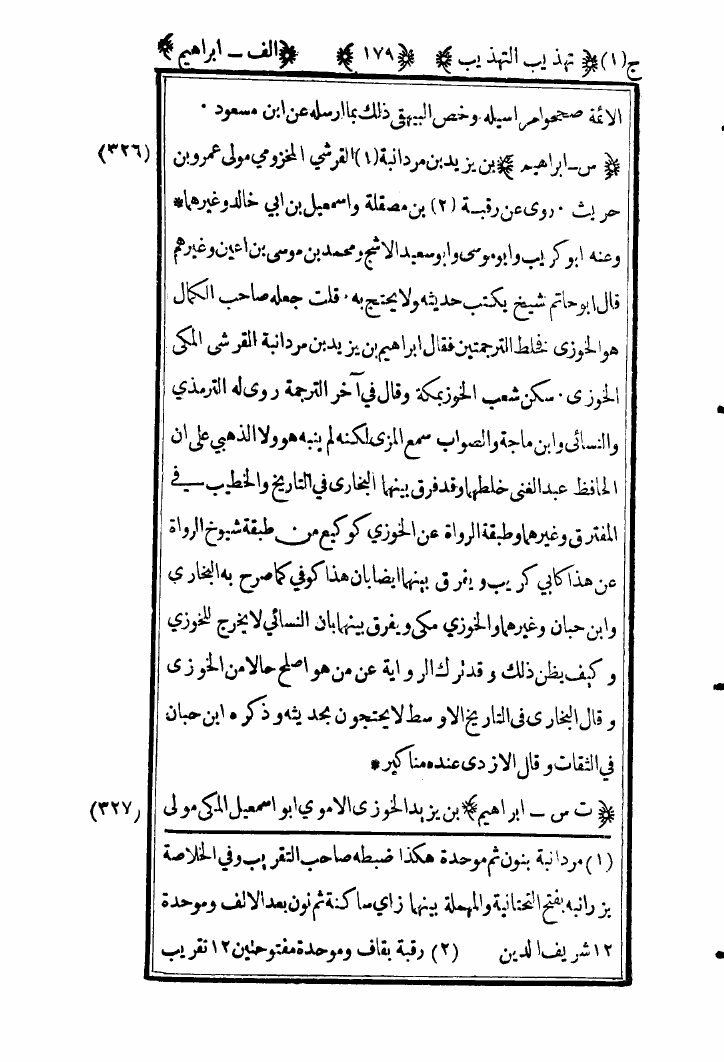 ج(١) ﴿ تهذيب التهذيب ﴾ ﴿ ١٧٩ ﴾ ﴿ الف ـ ابراهيم ﴾
الائمة صححوا مراسيله وخص البيهقى ذلك بما ارسله عن ابن مسعود ٠
(٣٢٦) ﴿ س ـ ابراهيم ﴾ بن يزيد بن مردانبة (١) القرشي المخزومي مولى عمرو بن
حريث ٠ روى عن رقبة (٢) بن مصقلة واسمعيل بن ابي خالد وغيرهما *
وعنه ابو كريب وابو موسى وابو سعيد الاشج ومحمد بن موسى بن اعين وغيرهم
قال ابو حاتم شيخ يكتب حديثه ولا يحتج به ٠ قلت جعله صاحب الكمال
هو الخوزى فخلط الترجمتين فقال ابراهيم بن يزيد بن مردانبة القرشى المكى
الخوزى ٠ سكن شعب الخوز بمكة وقال في آخر الترجمة روى له الترمذي
والنسائى وابن ماجة والصواب سمع المزى لكنه لم ينبه هو ولا الذهبي على ان
الحافظ عبد الغنى خلطهما وقد فرق بينهما البخارى في التاريخ والخطيب في
المفترق وغيرهما وطبقة الرواة عن الخوزي كوكيع من طبقة شيوخ الرواة
عن هذا كابي كريب ويفرق بينهما ايضا بان هذا كوفي كما صرح به البخارى
وابن حبان وغيرهما والخوزي مكى ويفرق بينهما بان النسائي لا يخرج للخوزي
وكيف يظن ذلك وقد ترك الرواية عن من هو اصلح حالا من الخوزى
وقال البخارى فى التاريخ الاوسط لا يحتجون بحديثه وذكره ابن حبان
في الثقات وقال الازدى عنده مناكير *
(٣٢٧) ﴿ ت س ـ ابراهيم ﴾ بن يزيد الخوزى الاموي ابو اسمعيل المكى مولى
(١) مردانبة بنون ثم موحدة هكذا ضبطه صاحب التقريب وفي الخلاصة
يزرانبه بفتح التحتانية والمهملة بينهما زاي ساكنة ثم نون بعد الالف وموحدة
١٢ شريف الدين (٢) رقبة بقاف وموحدة مفتوحتين ١٢ تقريب